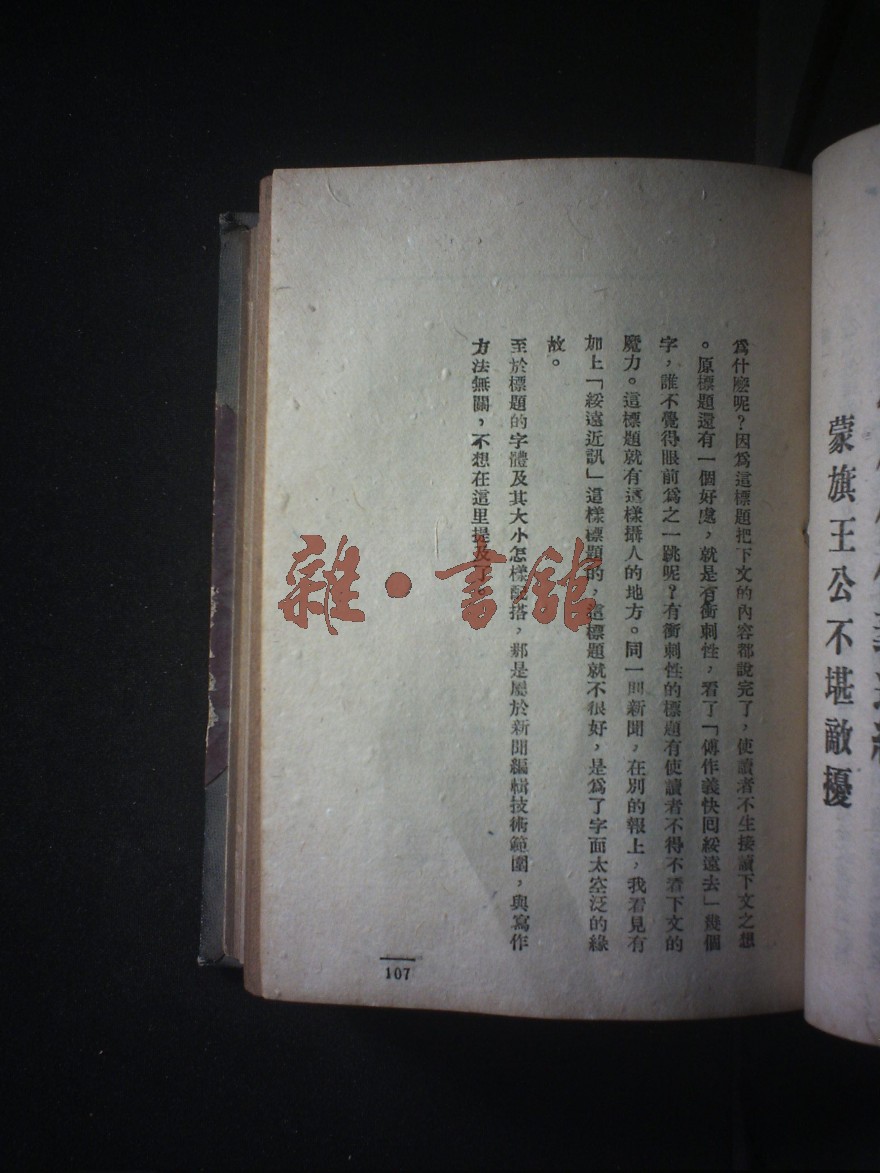 蒙旗王公不堪敵擾
爲什麽呢?因爲這標題把下文的內容都說完了,使讀者不生接讀下文之想
。原標題還有一個好處,就是有衝刺性,看了「傅作義快囘綏遠去」幾個
字,誰不覺得眼前爲之一跳呢?有衝刺性的標題有使讀者不得不看下文的
魔力。這標題就有這樣攝人的地方。同一則新聞,在別的報上,我看見有
加上「綏遠近訊」這樣標題的,這標題就不很好,是爲了字面太空泛的緣
故。
至於標題的字體及其大小怎樣配搭,那是屬於新聞編輯技術範圍,與寫作
方法無關,不想在這里提及了。
107
雜·書館